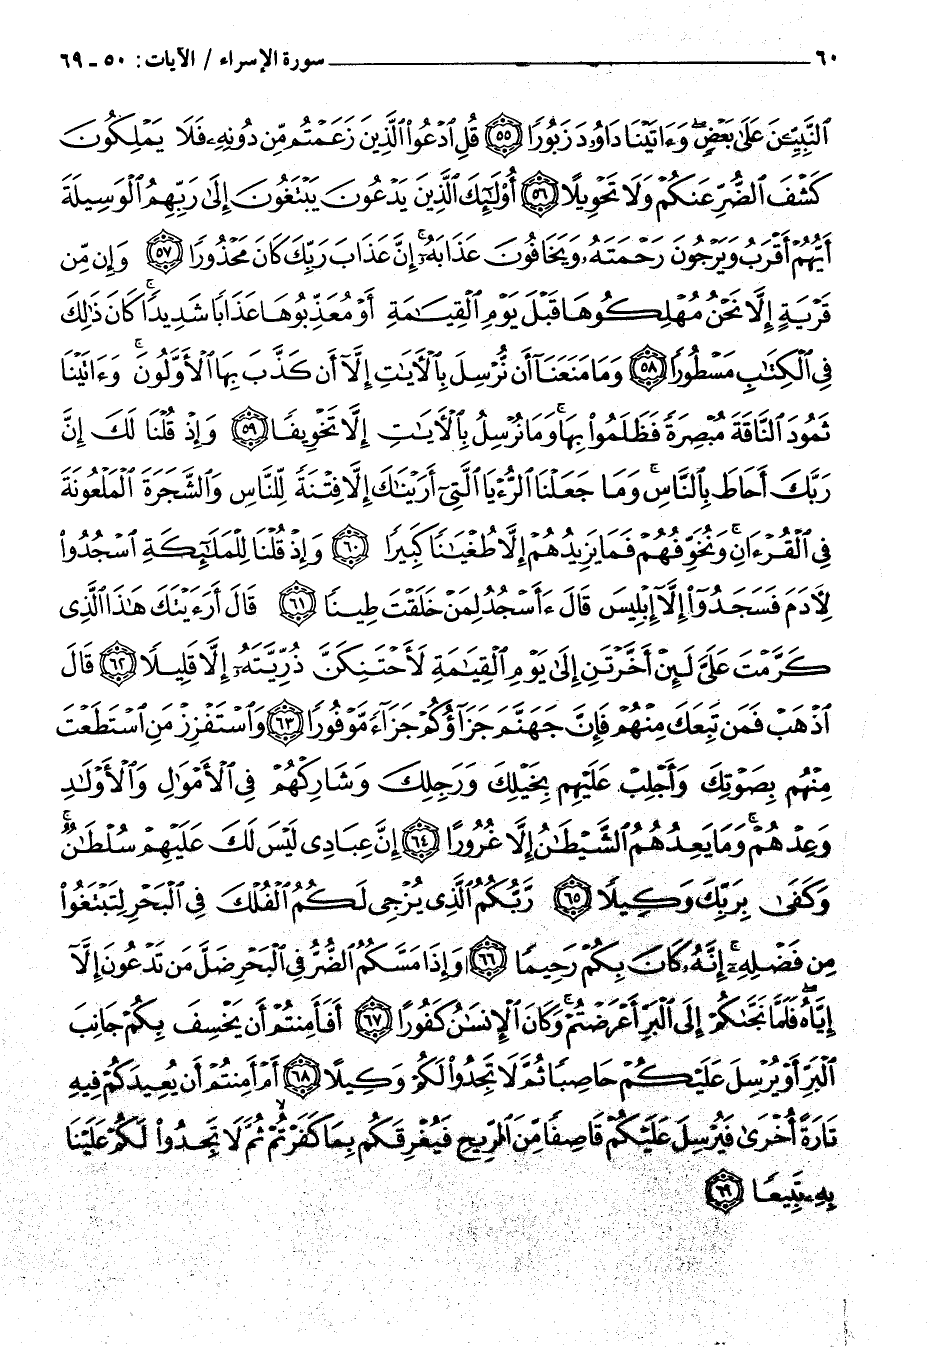 ٦٠ سورة الإسراء / الآيات: ٥٠ - ٦٩
النَّبِيِّـۧنَ عَلَىٰ بَعْضٍ ۖ وَءَاتَيْنَا دَاوُۥدَ زَبُورًا ﴿٥٥﴾ قُلِ ادْعُوا الَّذِينَ زَعَمْتُم مِّن دُونِهِۦ فَلَا يَمْلِكُونَ
كَشْفَ الضُّرِّ عَنكُمْ وَلَا تَحْوِيلًا ﴿٥٦﴾ أُوْلَٰٓئِكَ الَّذِينَ يَدْعُونَ يَبْتَغُونَ إِلَىٰ رَبِّهِمُ الْوَسِيلَةَ
أَيُّهُمْ أَقْرَبُ وَيَرْجُونَ رَحْمَتَهُۥ وَيَخَافُونَ عَذَابَهُۥٓ ۚ إِنَّ عَذَابَ رَبِّكَ كَانَ مَحْذُورًا ﴿٥٧﴾ وَإِن مِّن
قَرْيَةٍ إِلَّا نَحْنُ مُهْلِكُوهَا قَبْلَ يَوْمِ الْقِيَٰمَةِ أَوْ مُعَذِّبُوهَا عَذَابًا شَدِيدًا ۚ كَانَ ذَٰلِكَ
فِي الْكِتَٰبِ مَسْطُورًا ﴿٥٨﴾ وَمَا مَنَعَنَآ أَن نُّرْسِلَ بِالْأَيَٰتِ إِلَّآ أَن كَذَّبَ بِهَا الْأَوَّلُونَ ۚ وَءَاتَيْنَا
ثَمُودَ النَّاقَةَ مُبْصِرَةً فَظَلَمُوا بِهَا ۚ وَمَا نُرْسِلُ بِالْأَيَٰتِ إِلَّا تَخْوِيفًا ﴿٥٩﴾ وَإِذْ قُلْنَا لَكَ إِنَّ
رَبَّكَ أَحَاطَ بِالنَّاسِ ۚ وَمَا جَعَلْنَا الرُّءْيَا الَّتِىٓ أَرَيْنَٰكَ إِلَّا فِتْنَةً لِّلنَّاسِ وَالشَّجَرَةَ الْمَلْعُونَةَ
فِي الْقُرْءَانِ ۚ وَنُخَوِّفُهُمْ فَمَا يَزِيدُهُمْ إِلَّا طُغْيَٰنًا كَبِيرًا ﴿٦٠﴾ وَإِذْ قُلْنَا لِلْمَلَٰٓئِكَةِ اسْجُدُوا
لِأَدَمَ فَسَجَدُوٓا إِلَّآ إِبْلِيسَ قَالَ ءَأَسْجُدُ لِمَنْ خَلَقْتَ طِينًا ﴿٦١﴾ قَالَ أَرَءَيْتَكَ هَٰذَا الَّذِى
كَرَّمْتَ عَلَىَّ لَئِنْ أَخَّرْتَنِ إِلَىٰ يَوْمِ الْقِيَٰمَةِ لَأَحْتَنِكَنَّ ذُرِّيَّتَهُۥٓ إِلَّا قَلِيلًا ﴿٦٢﴾ قَالَ
اذْهَبْ فَمَن تَبِعَكَ مِنْهُمْ فَإِنَّ جَهَنَّمَ جَزَآؤُكُمْ جَزَآءً مَّوْفُورًا ﴿٦٣﴾ وَاسْتَفْزِزْ مَنِ اسْتَطَعْتَ
مِنْهُم بِصَوْتِكَ وَأَجْلِبْ عَلَيْهِم بِخَيْلِكَ وَرَجِلِكَ وَشَارِكْهُمْ فِي الْأَمْوَٰلِ وَالْأَوْلَٰدِ
وَعِدْهُمْ ۚ وَمَا يَعِدُهُمُ الشَّيْطَٰنُ إِلَّا غُرُورًا ﴿٦٤﴾ إِنَّ عِبَادِى لَيْسَ لَكَ عَلَيْهِمْ سُلْطَٰنٌ ۚ
وَكَفَىٰ بِرَبِّكَ وَكِيلًا ﴿٦٥﴾ رَّبُّكُمُ الَّذِى يُزْجِى لَكُمُ الْفُلْكَ فِي الْبَحْرِ لِتَبْتَغُوا
مِن فَضْلِهِۦٓ ۚ إِنَّهُۥ كَانَ بِكُمْ رَحِيمًا ﴿٦٦﴾ وَإِذَا مَسَّكُمُ الضُّرُّ فِي الْبَحْرِ ضَلَّ مَن تَدْعُونَ إِلَّآ
إِيَّاهُ ۖ فَلَمَّا نَجَّىٰكُمْ إِلَى الْبَرِّ أَعْرَضْتُمْ ۚ وَكَانَ الْإِنسَٰنُ كَفُورًا ﴿٦٧﴾ أَفَأَمِنتُمْ أَن يَخْسِفَ بِكُمْ جَانِبَ
الْبَرِّ أَوْ يُرْسِلَ عَلَيْكُمْ حَاصِبًا ثُمَّ لَا تَجِدُوا لَكُمْ وَكِيلًا ﴿٦٨﴾ أَمْ أَمِنتُمْ أَن يُعِيدَكُمْ فِيهِ
تَارَةً أُخْرَىٰ فَيُرْسِلَ عَلَيْكُمْ قَاصِفًا مِّنَ الرِّيحِ فَيُغْرِقَكُم بِمَا كَفَرْتُمْ ۙ ثُمَّ لَا تَجِدُوا لَكُمْ عَلَيْنَا
بِهِۦ تَبِيعًا ﴿٦٩﴾